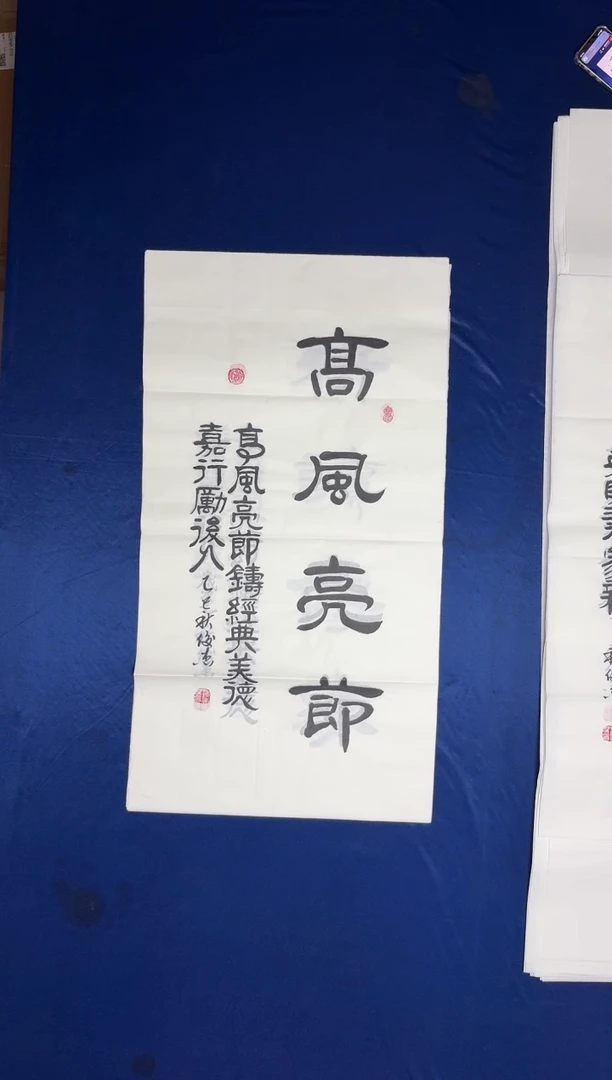 高風亮節
高風亮節鑄經典美德
嘉行勵後人 乙巳秋俊杰